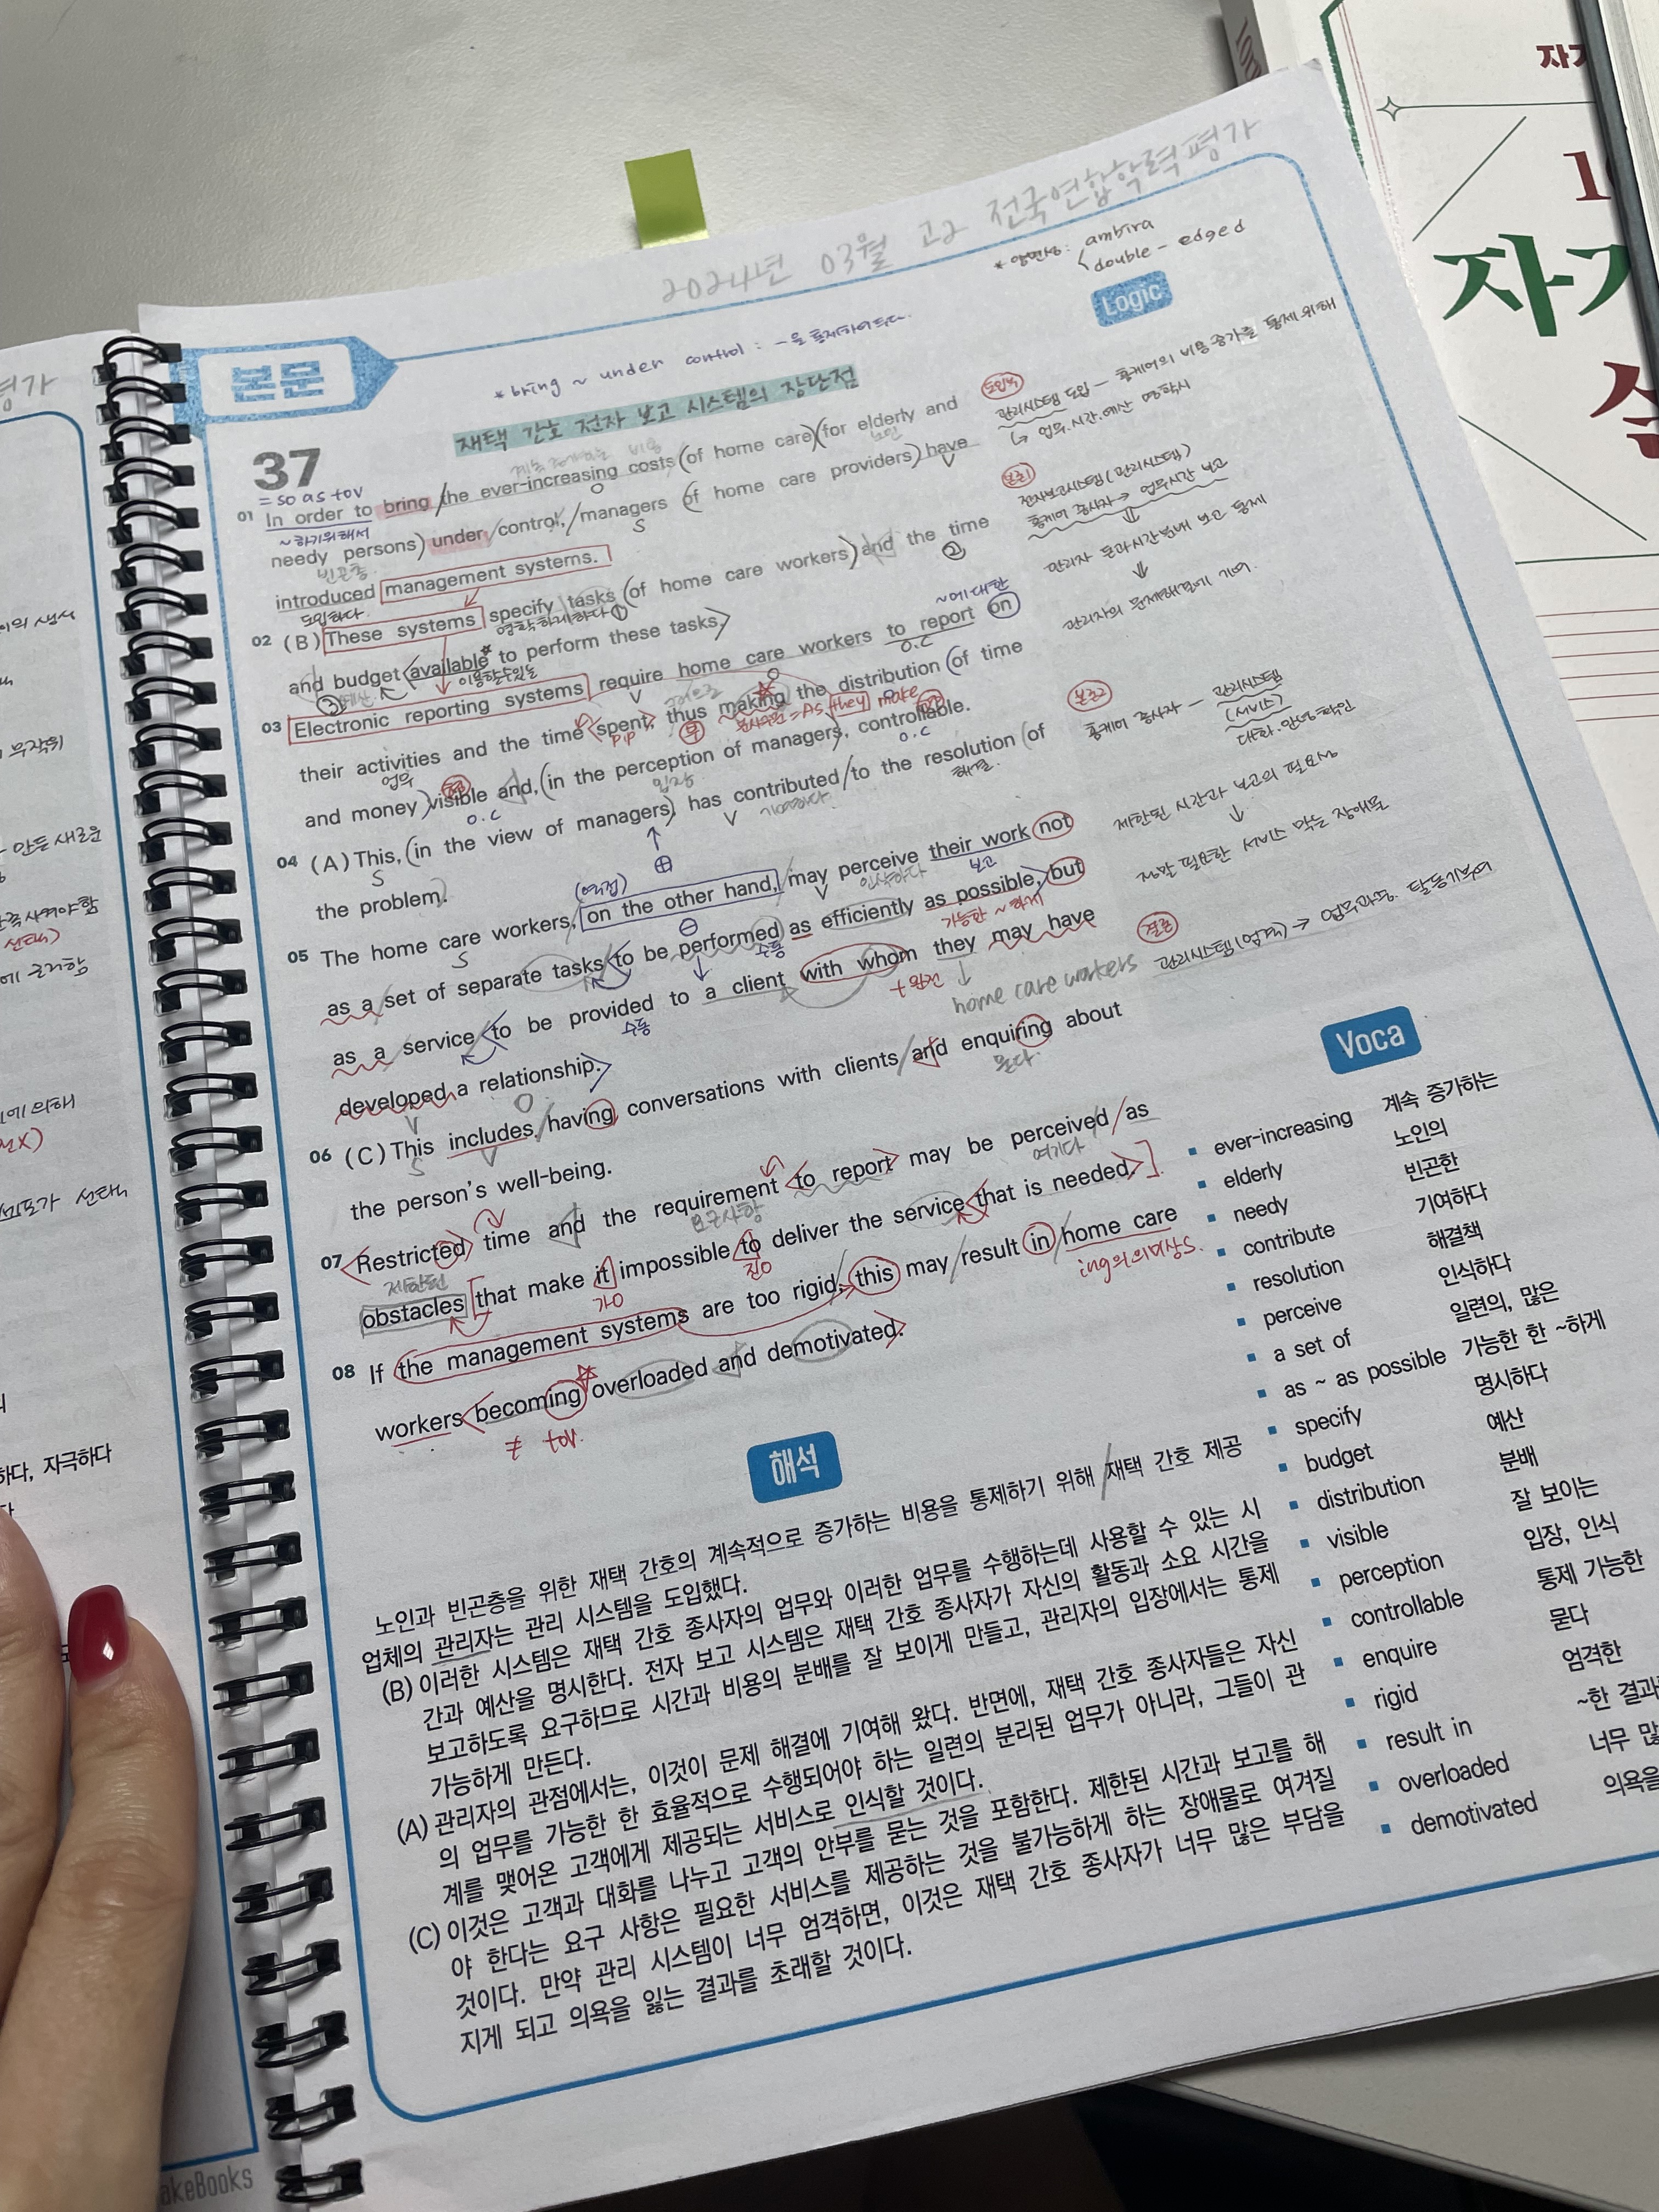 2024년 03월 고2 전국연합학력평가
* 양면성 : ambira
double - edged
Logic
본문
* bring ~ under control : ~을 통제하에 두다.
재택 간호 전자 보고 시스템의 장단점
37
= so as to v
01 In order to bring the ever-increasing costs (of home care) (for elderly and
~하기 위해서
needy persons) under control, managers (of home care providers) have
빈곤층
introduced management systems.
도입하다
02 (B) These systems specify tasks (of home care workers) and the time
명확하게하다 ①
②
and budget available to perform these tasks.
③ 예산
이용할수있는
~에 대한
03 Electronic reporting systems require home care workers to report on
O.C
their activities and the time spent, thus making the distribution (of time
업무
p.p
분사구문 = As they make
and money) visible and, (in the perception of managers), controllable.
O.C
입장
O.C
04 (A) This, (in the view of managers), has contributed to the resolution (of
S
V
기여하다
해결
the problem.
05 The home care workers, on the other hand, may perceive their work not
S
V
인식하다
as a set of separate tasks to be performed as efficiently as possible, but
수동
가능한 ~하게
as a service to be provided to a client with whom they may have
수동
+ 완전
home care workers
developed a relationship.
V
O
06 (C) This includes having conversations with clients and enquiring about
S
V
묻다.
the person's well-being.
07 Restricted time and the requirement to report may be perceived as
제한된
요구사항
여기다
obstacles [that make it impossible to deliver the service that is needed.]
가O
진O
08 If the management systems are too rigid, this may result in home care
ing의 의미상 S.
workers becoming overloaded and demotivated.
≠ to v.
도입부
관리시스템 도입 - 홈케어의 비용증가를 통제 위해
↳ 업무.시간.예산 명확시
본론1
전자보고시스템 (관리시스템)
홈케어 종사자 → 업무시간 보고
⇓
관리자 돈과시간분배 보고 통제
⇓
관리자의 문제해결에 기여.
본론2
홈케어 종사자 - 관리시스템
(서비스)
제한된 시간과 보고의 필요성
↓
정말 필요한 서비스 막는 장애물
결론
관리시스템(엄격) → 업무과중. 탈동기부여
Voca
ever-increasing 계속 증가하는
elderly 노인의
needy 빈곤한
contribute 기여하다
resolution 해결책
perceive 인식하다
a set of 일련의, 많은
as ~ as possible 가능한 한 ~하게
specify 명시하다
budget 예산
distribution 분배
visible 잘 보이는
perception 입장, 인식
controllable 통제 가능한
enquire 묻다
rigid 엄격한
result in ~한 결과
overloaded 너무 많
demotivated 의욕을
해석
노인과 빈곤층을 위한 재택 간호의 계속적으로 증가하는 비용을 통제하기 위해 재택 간호 제공
업체의 관리자는 관리 시스템을 도입했다.
(B) 이러한 시스템은 재택 간호 종사자의 업무와 이러한 업무를 수행하는데 사용할 수 있는 시
간과 예산을 명시한다. 전자 보고 시스템은 재택 간호 종사자가 자신의 활동과 소요 시간을
보고하도록 요구하므로 시간과 비용의 분배를 잘 보이게 만들고, 관리자의 입장에서는 통제
가능하게 만든다.
(A) 관리자의 관점에서는, 이것이 문제 해결에 기여해 왔다. 반면에, 재택 간호 종사자들은 자신
의 업무를 가능한 한 효율적으로 수행되어야 하는 일련의 분리된 업무가 아니라, 그들이 관
계를 맺어온 고객에게 제공되는 서비스로 인식할 것이다.
(C) 이것은 고객과 대화를 나누고 고객의 안부를 묻는 것을 포함한다. 제한된 시간과 보고를 해
야 한다는 요구 사항은 필요한 서비스를 제공하는 것을 불가능하게 하는 장애물로 여겨질
것이다. 만약 관리 시스템이 너무 엄격하면, 이것은 재택 간호 종사자가 너무 많은 부담을
지게 되고 의욕을 잃는 결과를 초래할 것이다.
akeBooks
평가
만든 새로운
에 의해
하다, 자극하다
자기